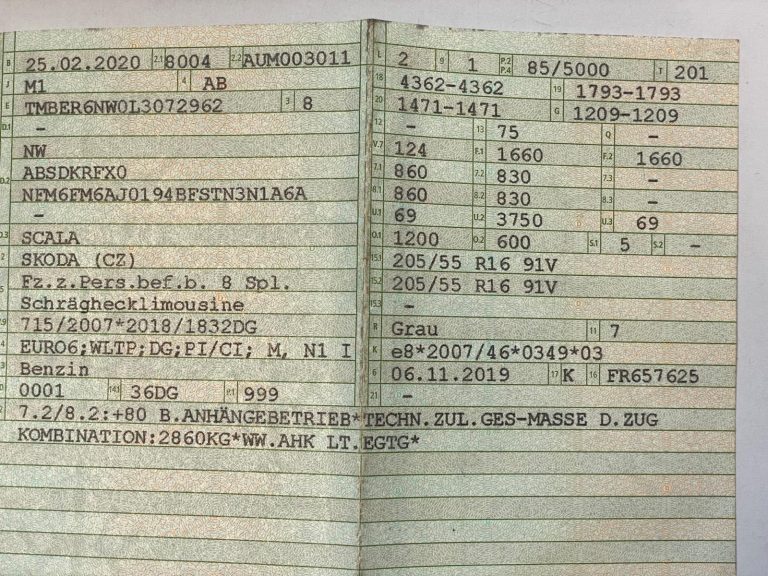 B 25.02.2020 2.1 8004 2.2 AUM003011
J M1 4 AB
E TMBER6NW0L3072962 3 8
D.1 -
NW
D.2 ABSDKRFX0
NFM6FM6AJ0194BFSTN3N1A6A
-
D.3 SCALA
2 SKODA (CZ)
5 Fz.z.Pers.bef.b. 8 Spl.
Schräghecklimousine
V.9 715/2007*2018/1832DG
14 EURO6;WLTP;DG;PI/CI; M, N1 I
P.3 Benzin
10 0001 14.1 36DG P.1 999
L 2 9 1 P.2 P.4 85/5000 T 201
18 4362-4362 19 1793-1793
20 1471-1471 G 1209-1209
12 - 13 75 Q -
V.7 124 F.1 1660 F.2 1660
7.1 860 7.2 830 7.3 -
8.1 860 8.2 830 8.3 -
U.1 69 U.2 3750 U.3 69
O.1 1200 O.2 600 S.1 5 S.2 -
15.1 205/55 R16 91V
15.2 205/55 R16 91V
15.3 -
R Grau 11 7
K e8*2007/46*0349*03
6 06.11.2019 17 K 16 FR657625
21 -
22 7.2/8.2:+80 B.ANHÄNGEBETRIEB*TECHN.ZUL.GES-MASSE D.ZUG
KOMBINATION:2860KG*WW.AHK LT.EGTG*